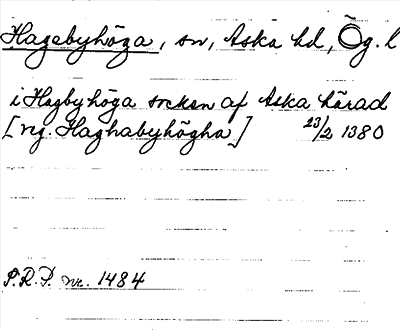 Hagebyhöga, sn, Aska hd, Ög. l
i Hagbyhöga socken af Aska härad
[reg. Haghabyhögha] 23/2 1380
P.R.P. nr. 1484